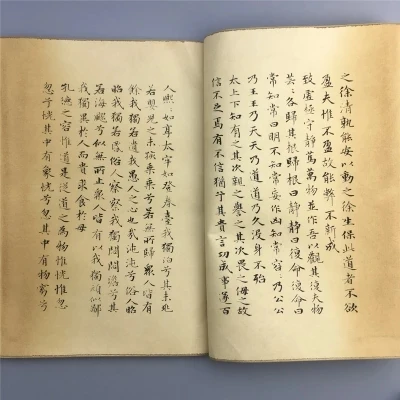 之徐清孰能安以動之徐生保此道者不欲
盈夫惟不盈故能弊不新成
致虛極守靜篤萬物並作吾以觀其復夫物
芸:各歸其根歸根曰靜靜曰復命復命曰
常知常曰明不知常妄作凶知常容乃公公
乃王王乃天天乃道道乃久没身不殆
太上下知有之其次親之譽之其次畏之侮之故
信不足焉有不信猶兮其貴言功成事遂百
人熙:如享太牢如登春臺我獨泊兮其未兆
若嬰兒之未孩乘乘兮若無所歸衆人皆有
餘我獨若遺我愚人之心也哉沌沌兮俗人昭
昭我獨若昏俗人察察我獨悶悶澹兮其
若海飂兮似無所止衆人皆有以我獨頑似鄙
我獨異於人而貴求食於母
孔德之容惟道是從道之為物惟恍惟忽
忽兮恍其中有象恍兮忽其中有物窈兮